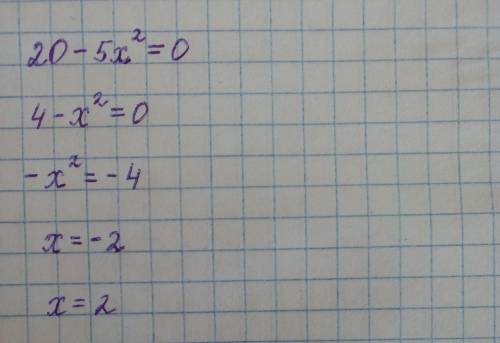 20 - 5x² = 0
4 - x² = 0
- x² = - 4
x = - 2
x = 2